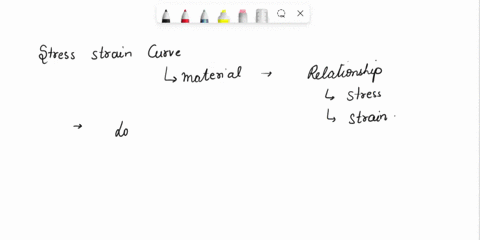 Stress strain Curve
↳ material → Relationship
↳ stress
↳ strain.
→ do